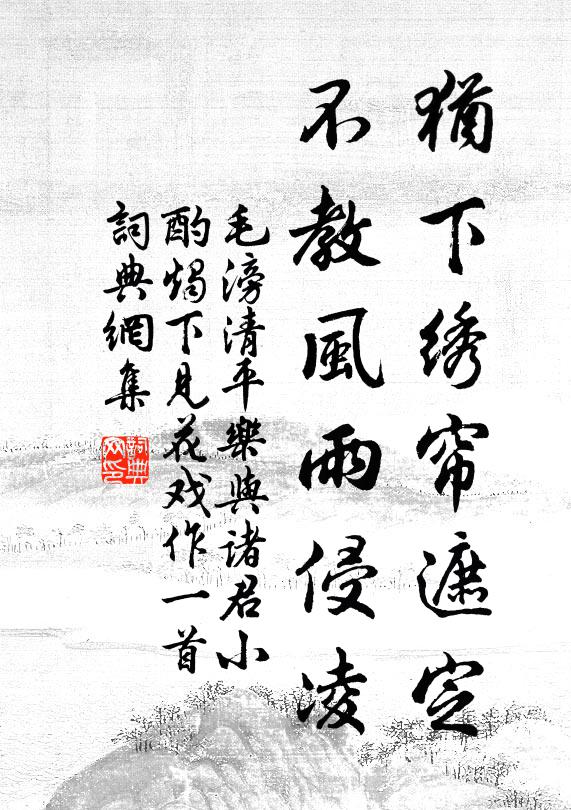 猶下绣帘遮定
不教風雨侵凌
毛滂清平樂與諸君小
酌燭下見花戏作一首
詞典網集
詞典
网印